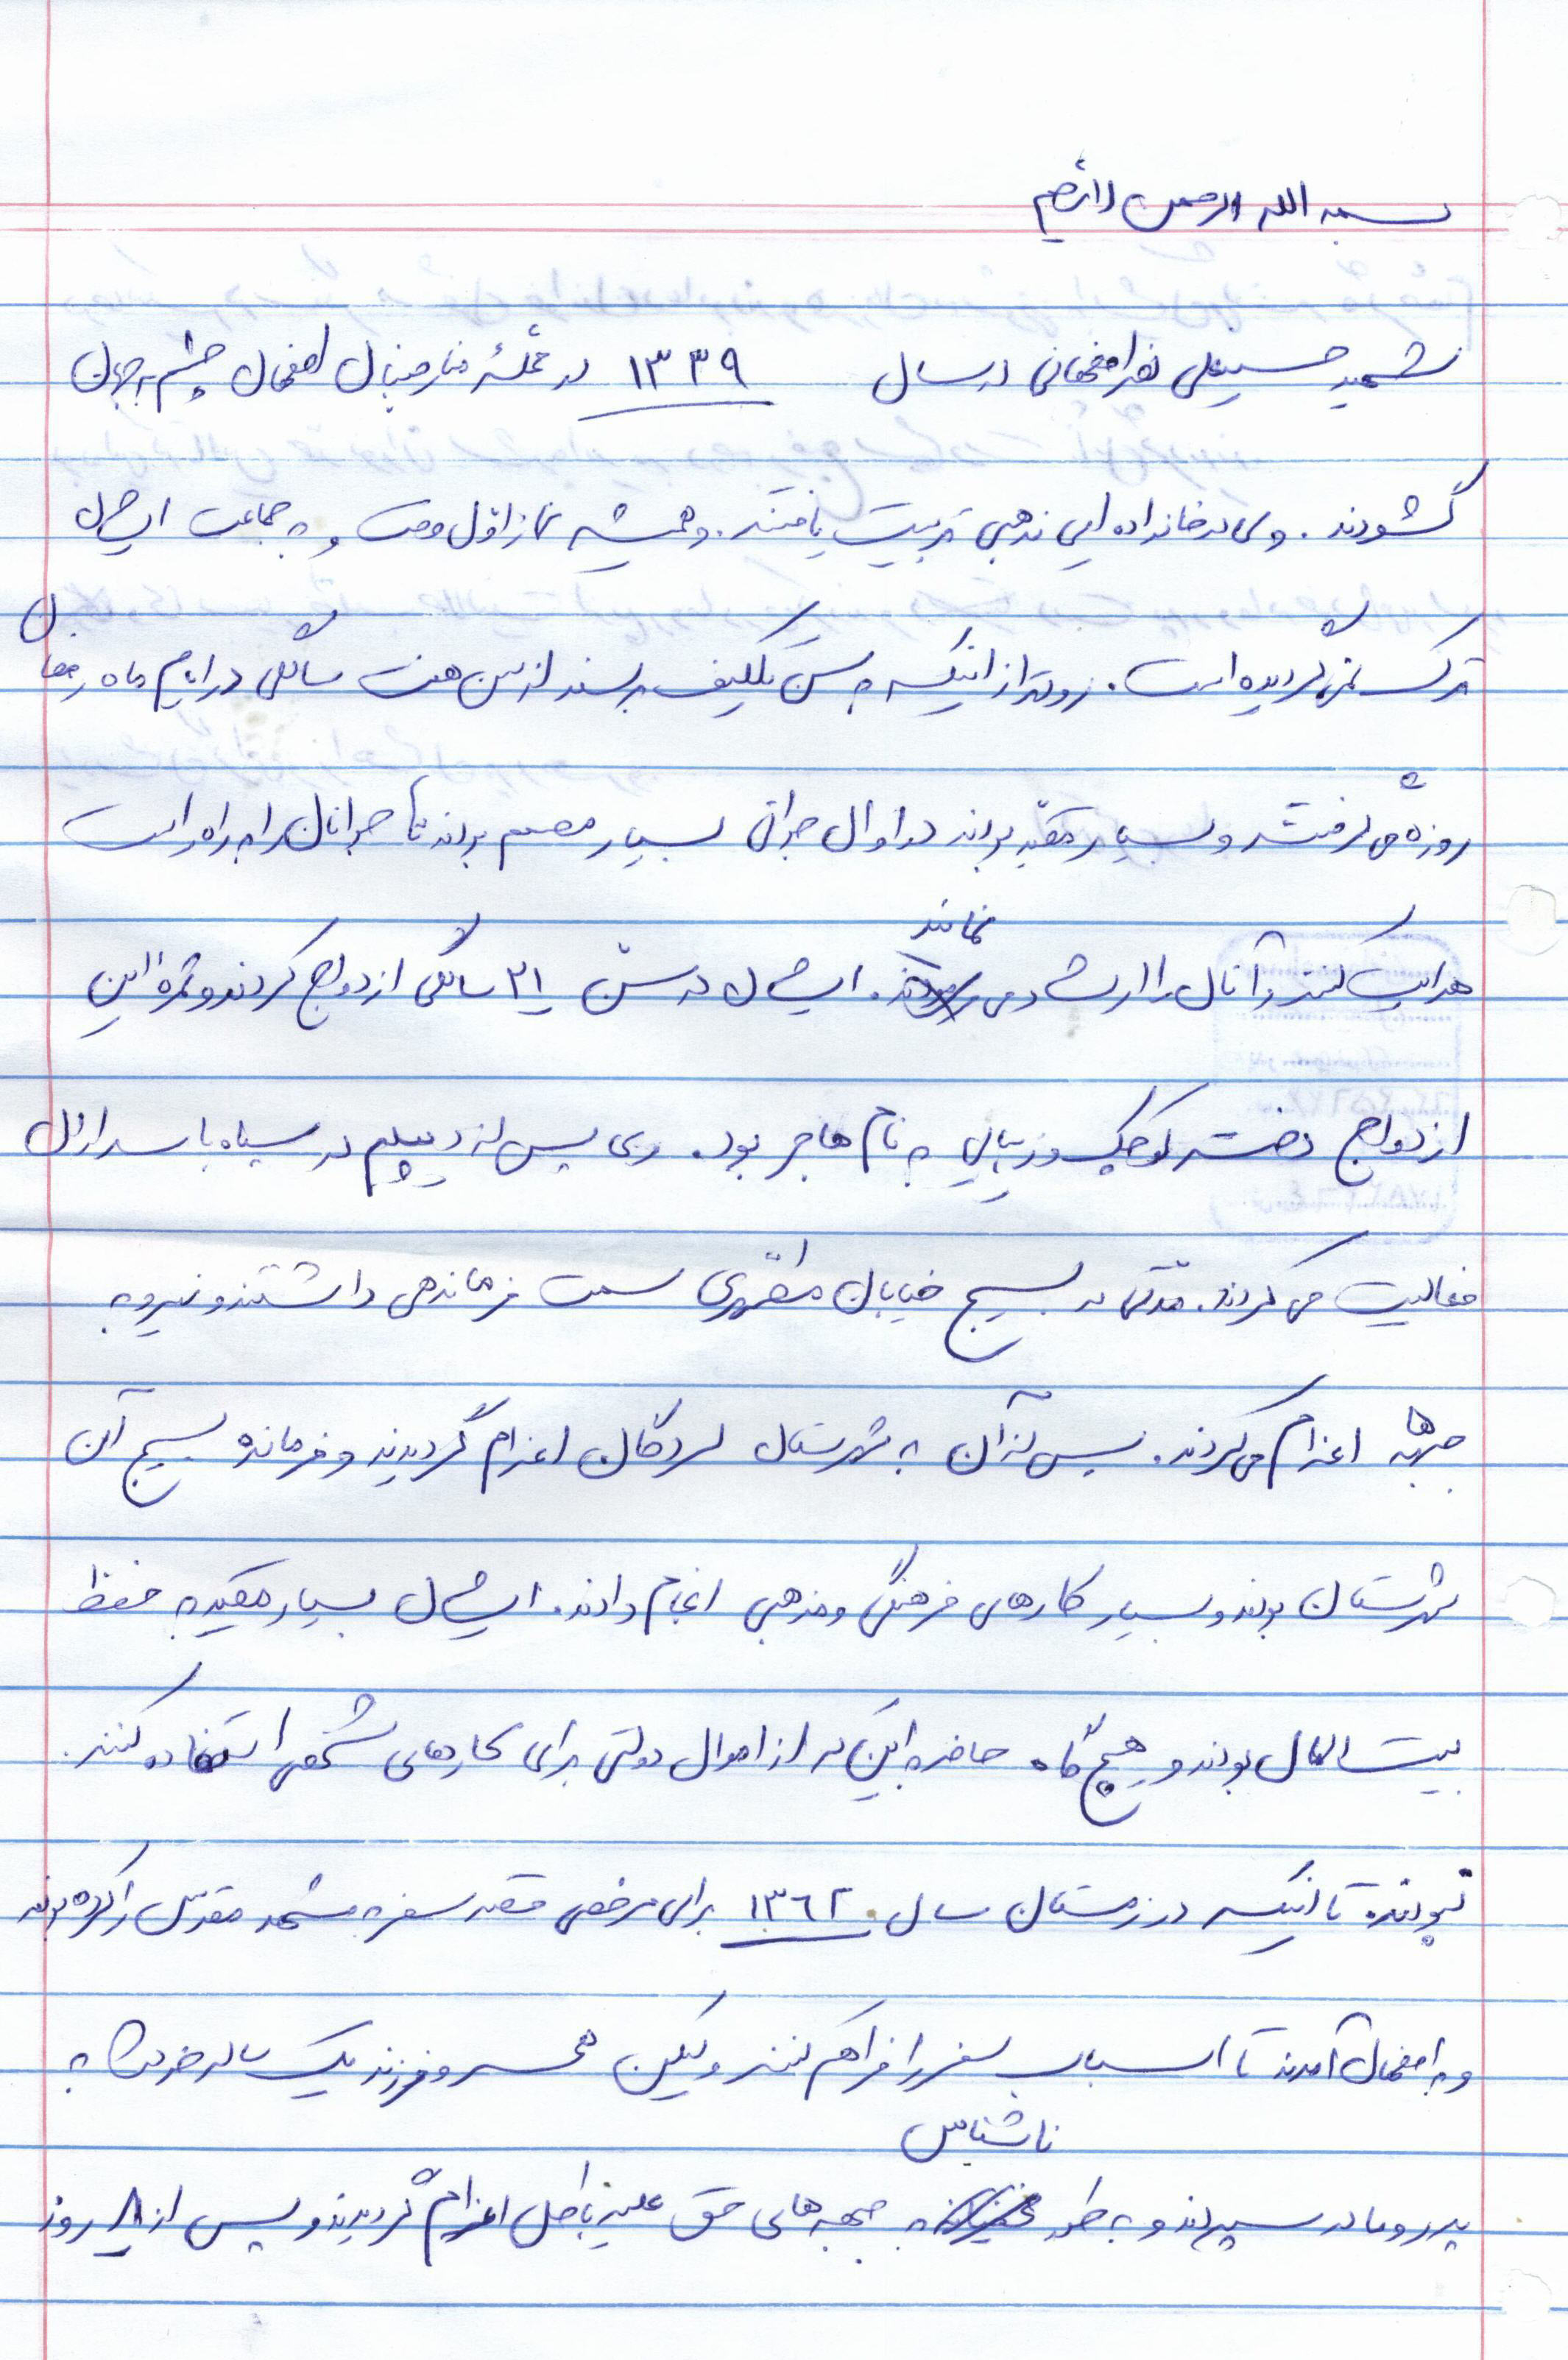 بسم الله الرحمن الرحیم
شهید حسینعلی نصراصفهانی در سال ۱۳۳۹ در محلّهٔ منارجنبان اصفهان چشم به جهان
گشودند. وی در خانواده ایی مذهبی تربیت یافتند. و همیشه نماز اوّل وقت و به جماعت ایشان
ترک نمی گردیده است. زودتر از اینکه به سن تکلیف برسند از سن هفت سالگی در ایّام ماه رمضان
روزه می گرفتند و بسیار مقیّد بودند در اوایل جوانی بسیار مصمم بودند تا جوانان را به راه راست
هدایت کنند و آنان را ارشاد می نمایند. ایشان در سنّ ۲۱ سالگی ازدواج کردند و ثمرهٔ این
ازدواج دختر کوچک و زیبایی به نام هاجر بود. وی پس از دیپلم در سپاه پاسداران
فعالیت می کردند. مدّتی در بسیج خیابان مطهری سمت فرماندهی داشتند و نیرو به
جبهه ها اعزام می کردند. پس از آن به شهرستان لردگان اعزام گردیدند و فرمانده بسیج آن
شهرستان بودند و بسیار کارهای فرهنگی و مذهبی انجام دادند. ایشان بسیار مقید به حفظ
بیت المال بودند و هیچ گاه حاضر به این که از اموال دولتی برای کارهای شخصی استفاده کنند.
نبودند تا اینکه در زمستان سال ۱۳۶۲ برای مرخصی قصد سفر به مشهد مقدّس را کرده بودند
و به اصفهان آمدند تا اسباب سفر را فراهم کنند ولیکن همسر و فرزند یک ساله خود را به
پدر و مادر سپردند و به طور ناشناس به جبهه های حق علیه باطل اعزام گردیدند و پس از ۸ روز